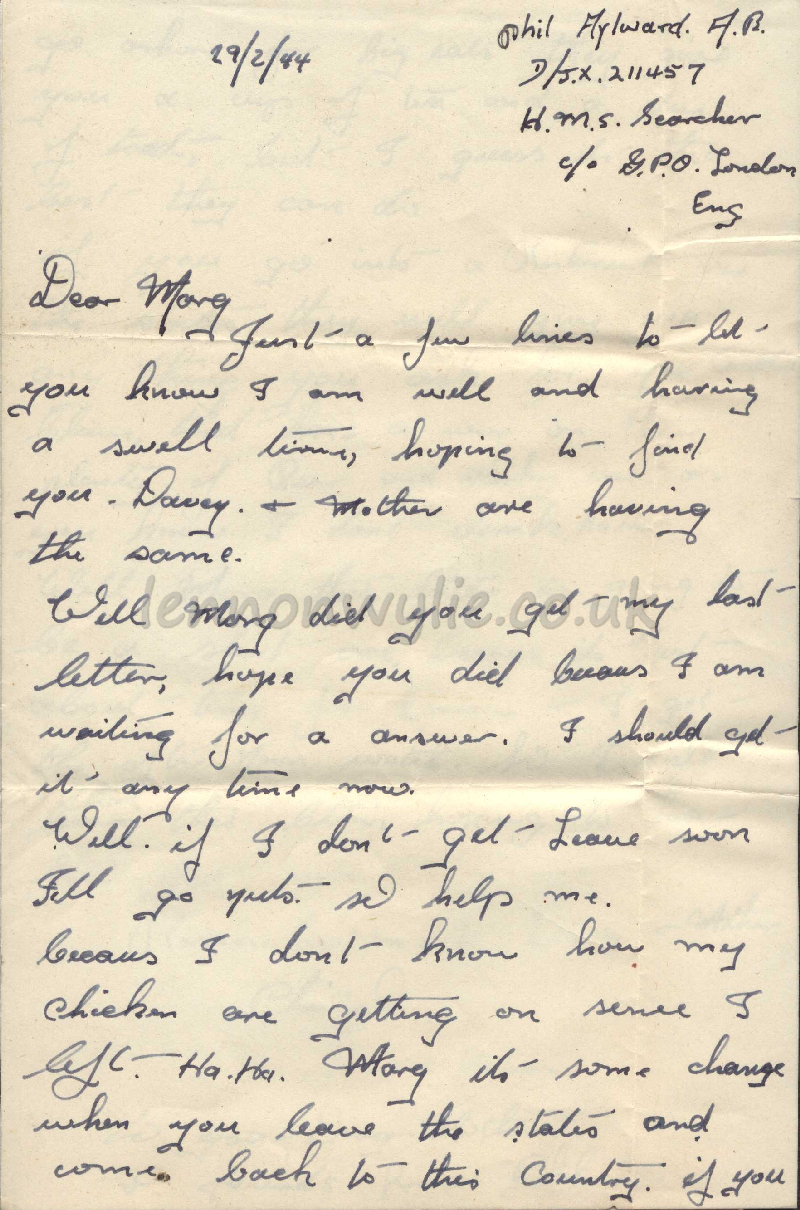 29/2/44
Phil Aylward. A.B.
D/J.X. 211457
H.M.S. Searcher
c/o G.P.O. London
Eng
Dear Marg
Just a few lines to let
you know I am well and having
a swell time, hoping to find
you. Davey. + Mother are having
the same.
lennonwylie.co.uk
Well Marg did you get my last
letter, hope you did becaus I am
waiting for a answer. I should get
it any time now.
Well. if I don't get Leave soon
I'll go nuts. so help me.
becaus I don't know how my
chicken are getting on sence I
left. Ha. Ha. Marg its some change
when you leave the states and
come back to this Country. if you